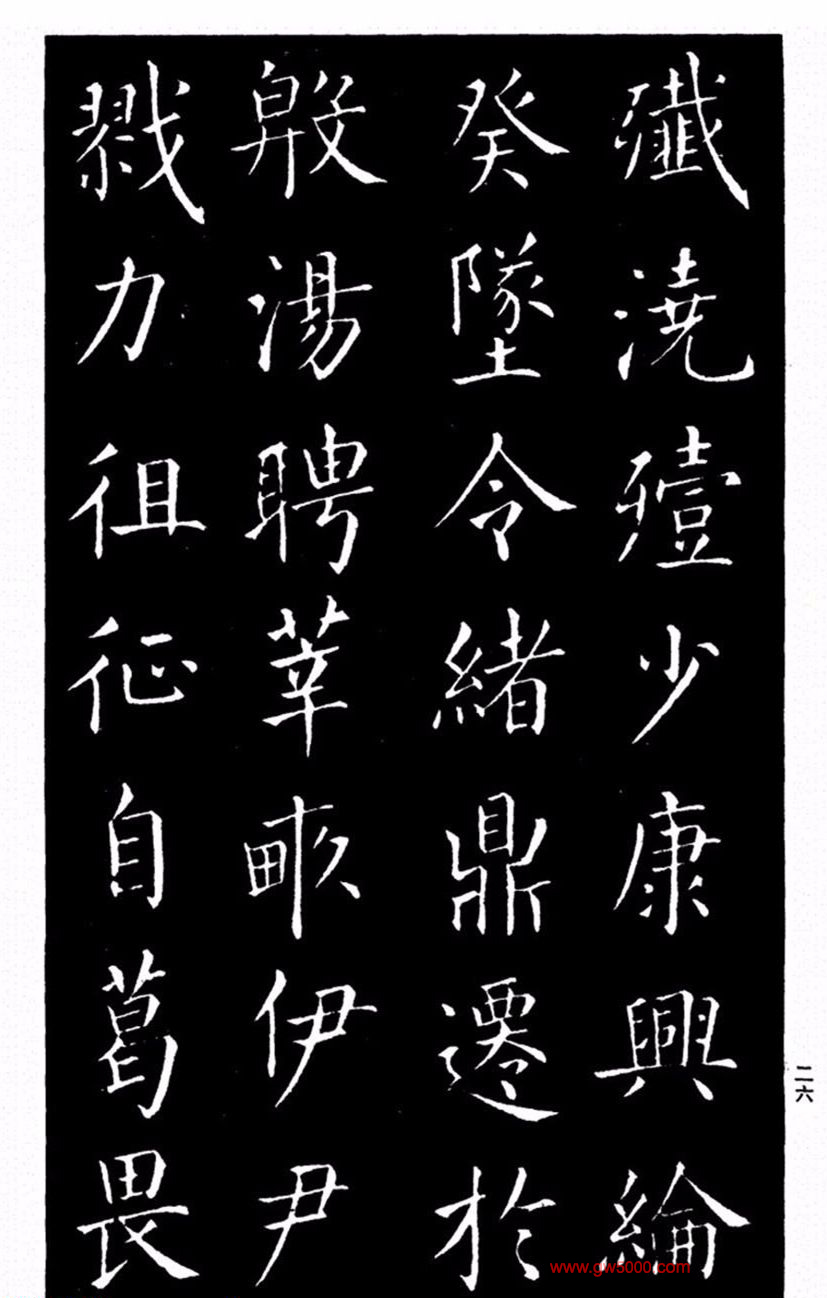 殲澆殪少康興綸
癸墜令緒鼎遷於
殷湯聘莘畝伊尹
戮力徂征自葛畏
二六
www.gw5000.com